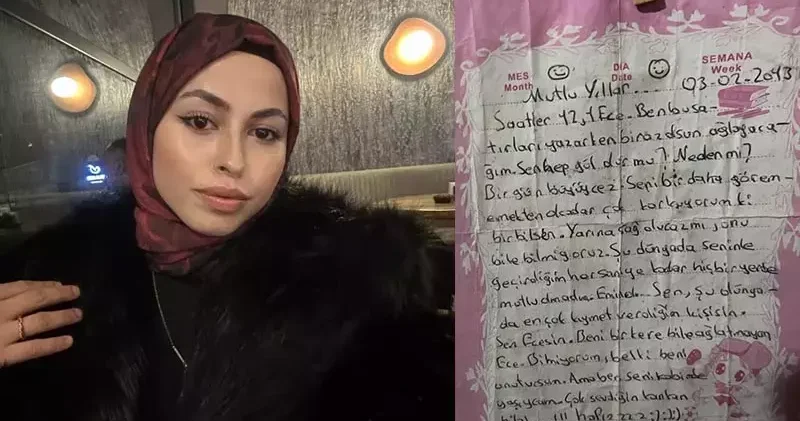 MES DIA SEMANA
Month Date Week
Mutlu Yıllar... 03-02-2013
Saatler 12,1 Ece. Ben bu sa-
tırları yazarken biraz olsun ağlayaca-
ğım. Sen hep gül mu? Neden mi?
Bir gün büyücez. Seni bir daha görem-
emekten o kadar çok korkuyorum ki
bir bilsen. Yarına olucazmı şunu
bile bilmiyoruz. Şu dünyada seninle
geçirdiğim her saniye kadar hiçbir yerde
mutlu olmadım. Emin ol... Sen, şu dünya-
da en çok kıymet verdiğim kişisin.
Sen Ecesin. Beni bir kere bile ağlatmayan
Ece. Bilmiyorum, belki beni
unutursun. Ama ben seni kalbimde
yaşıycam. Çok sevdiğin kankan
!!! :):):)